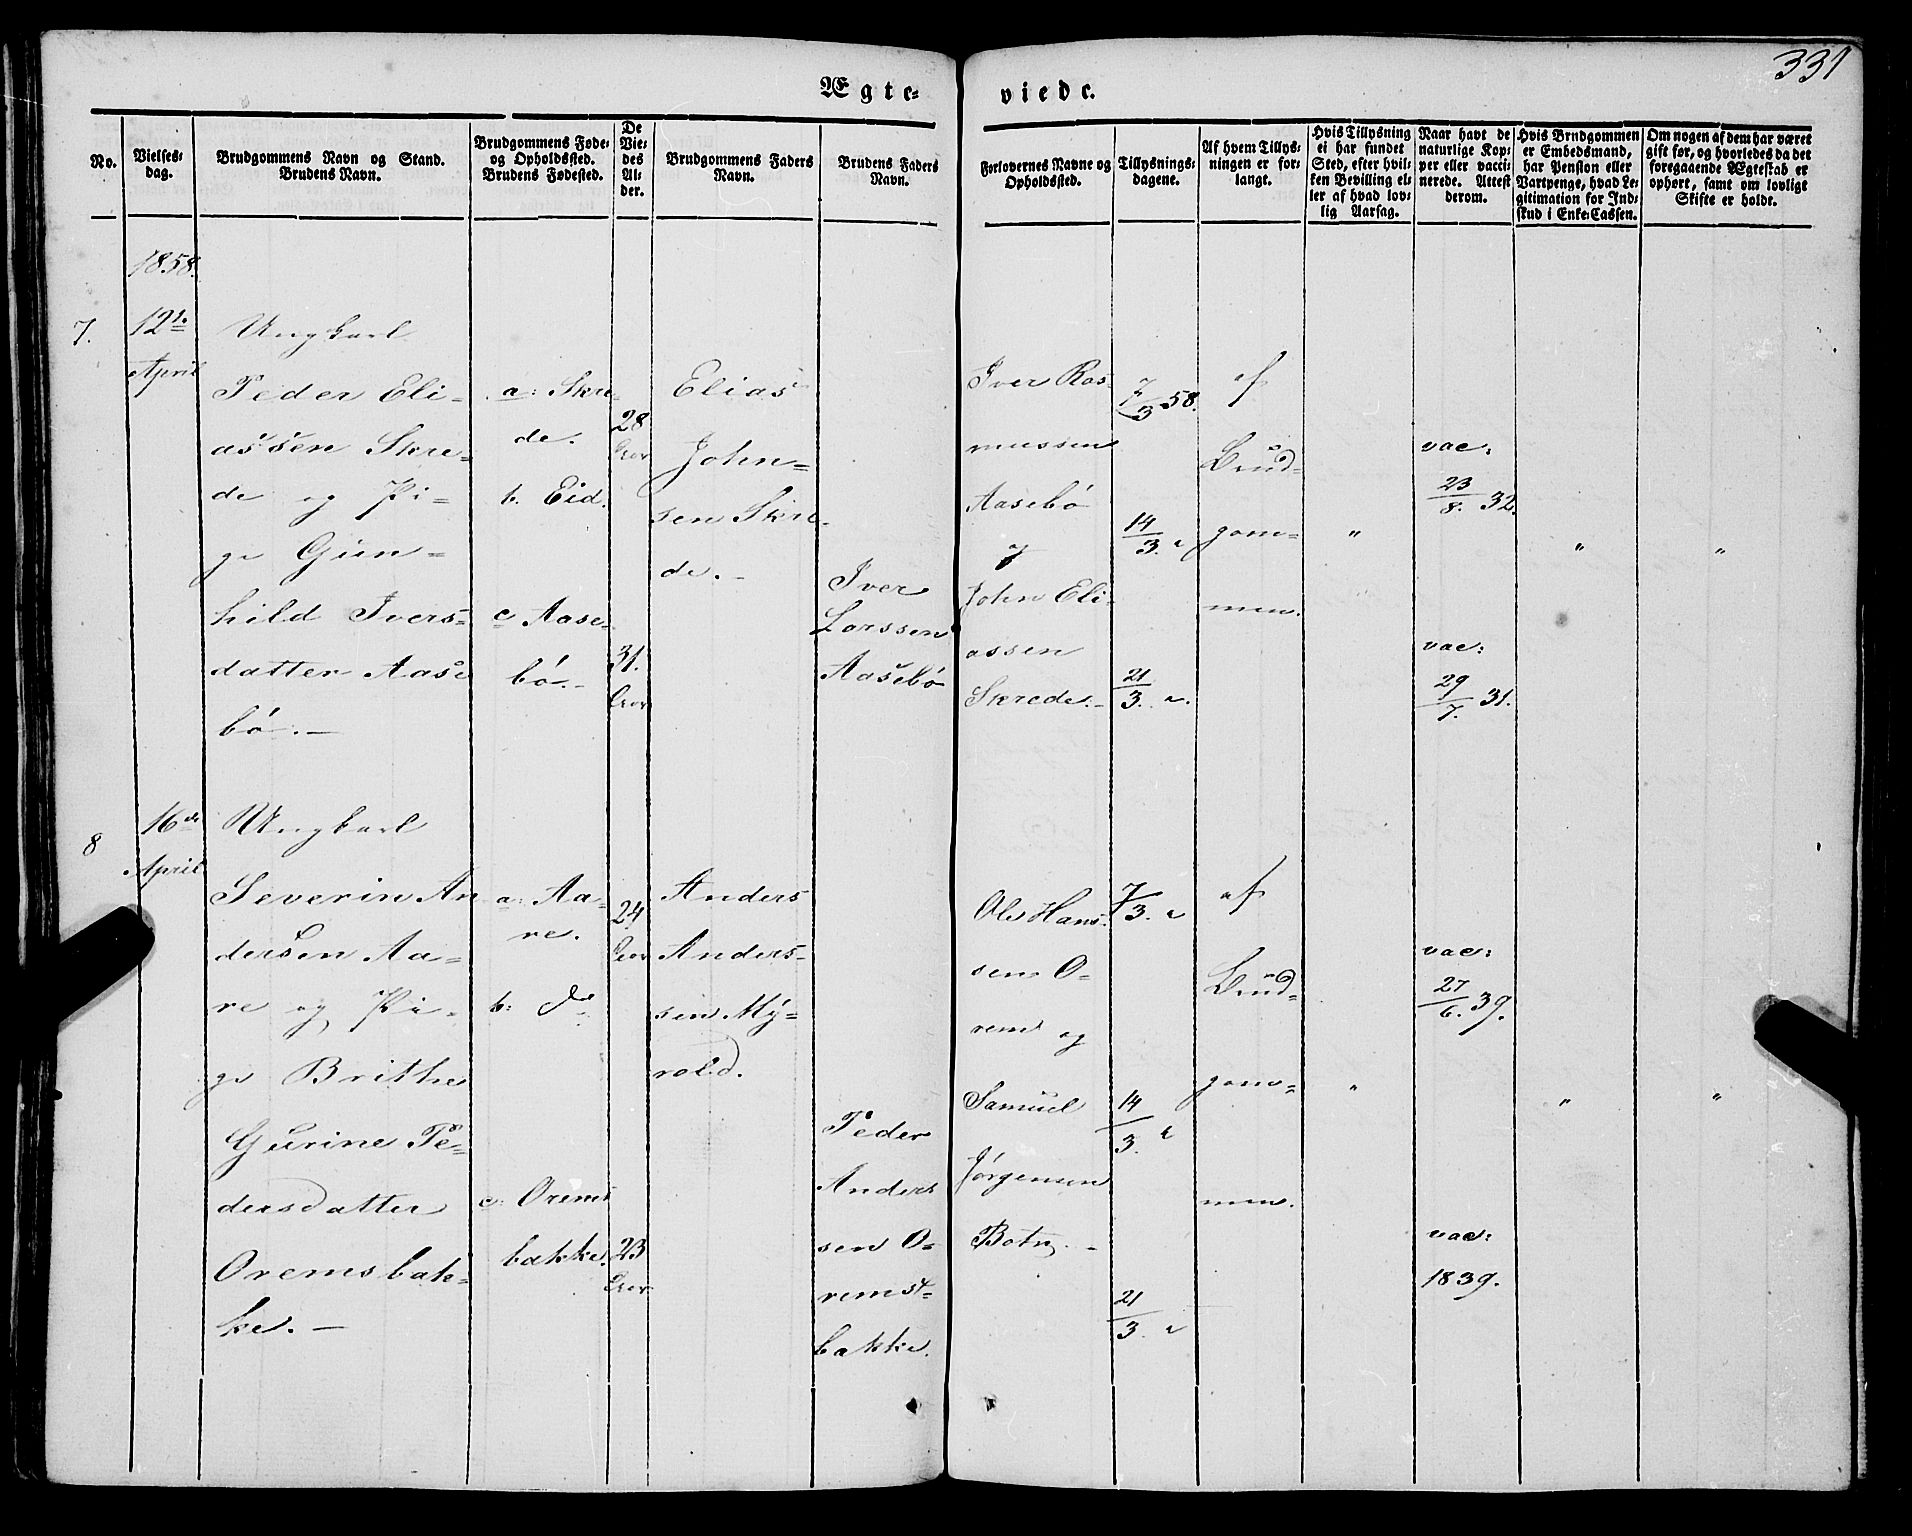 331
Ægte-
viede.
No.
Vielses-
dag.
Brudgommens Navn og Stand.
Brudens Navn.
Brudgommens Føde-
og Opholdssted.
Brudens Fødested.
De
Vie-
des
Al-
der.
Brudgommens Faders
Navn.
Brudens Faders
Navn.
Forlovernes Navne og
Opholdssted.
Tillysnings-
dagene.
Af hvem Tillys-
ningen er for-
langt.
Hvis Tillysning
ei har fundet
Sted, efter hvil-
ken Bevilling el-
ler af hvad lov-
lig Aarsag.
Naar havt de
naturlige Kop-
per eller vacci-
nerede. Attest
derom.
Hvis Brudgommen
er Embedsmand,
har Pension eller
Vartpenge, hvad Le-
gitimation for Ind-
skud i Enke-Cassen.
Om nogen af dem har været
gift før, og hvorledes da det
foregaaende Ægteskab er
ophørt, samt om lovligt
Skifte er holdt.
1858.
7.
12te
April
Ungkarl
Peder Eli-
assen Skre-
de og Pi-
ge Gun-
hild Ivers-
datter Aase
bø.
a: Skre-
de.
b. Eid.
c Aase-
bø.
28
31.
Elias
John-
sen Skre-
de.
Iver
Larssen
Aasebø
Iver Ras-
mussen
Aasebø
og
John Eli-
assen
Skrede.
7/3 58.
14/3. "
21/3. ".
af
Brud-
gom-
men.
"
vac:
23/8. 32.
vac:
29/7. 31.
"
"
8
16de
April
Ungkarl
Severin An
dersen Aa-
re og Pi-
ge Brithe
Gurine Pe-
dersdatter
Oremsbak-
ke.
a: Aa-
re.
b: do
c: Orems
bakke.
24
23
Anders
Anders-
sen My-
rold.
Peder
Anders
sen O-
rems-
bakke.
Ole Hans-
sen O-
rem og
Samuel
Jørgensen
Botn.
7/3. "
14/3. "
21/3. "
af
Brud-
gom-
men.
"
vac:
27/6. 39.
vac:
1839.
"
"